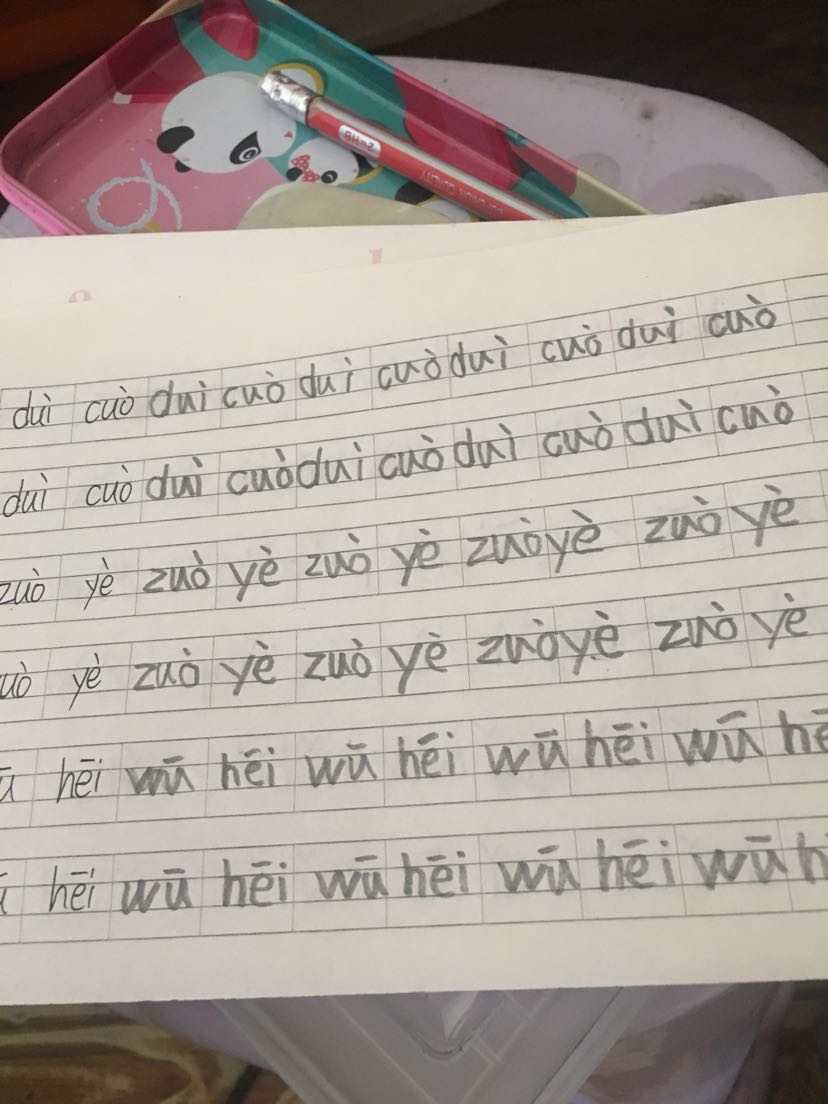 Z=HB
duì cuò duì cuò duì cuò duì cuò duì cuò
duì cuò duì cuò duì cuò duì cuò duì cuò
zuò yè zuò yè zuò yè zuò yè zuò yè
uò yè zuò yè zuò yè zuò yè zuò yè
ū hēi wū hēi wū hēi wū hēi wū hē
hēi wū hēi wū hēi wū hēi wū h